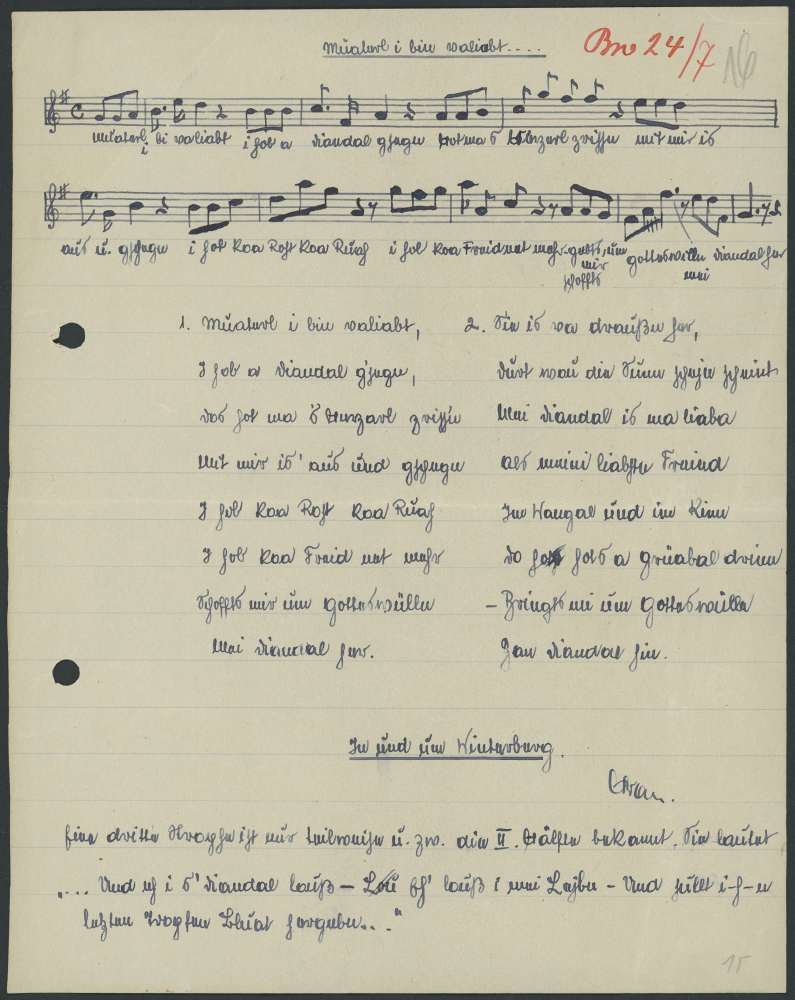 Muaterl i bin valiabt....
Bw 24/7
16
Muaterl i bi valiabt i hob a Diandal gsegn hot ma 's Herzerl zrissn mit mir is
aus u. gschegn i hob koa Rost koa Ruah i hob koa Freid net mehr - gebts mir um gotteswilln mei Diandal her
schoffts
1. Muaterl i bin valiabt,
I hob a Diandal g'segn,
Dos hot ma 's Herzerl zrissn
Mit mir is' aus und gschegn
I hob koa Rost koa Ruah
I hob koa Freid net mehr
Schoffts mir um gotteswülln
Mei Diandal her.
2. Sie is va draußn her,
Durt wou die Sunn schejn scheint
Mei Diandal is ma liaba
als meini liabstn Freind
Im Wangal und im Kinn
Do hots a grüabal drinn
- Bringts mi um gotteswülln
Zan Diandal hin.
In und um Winterberg.
Eine dritte Strophe ist nur teilweise u. zw. die II. Hälfte bekannt. Sie lautet
"... Und eh i 's' Diandal lauß - eh' lauß i mei Lejbn - Und sullt i-h-n
letzten Tropfen Bluat hergebn..."
15